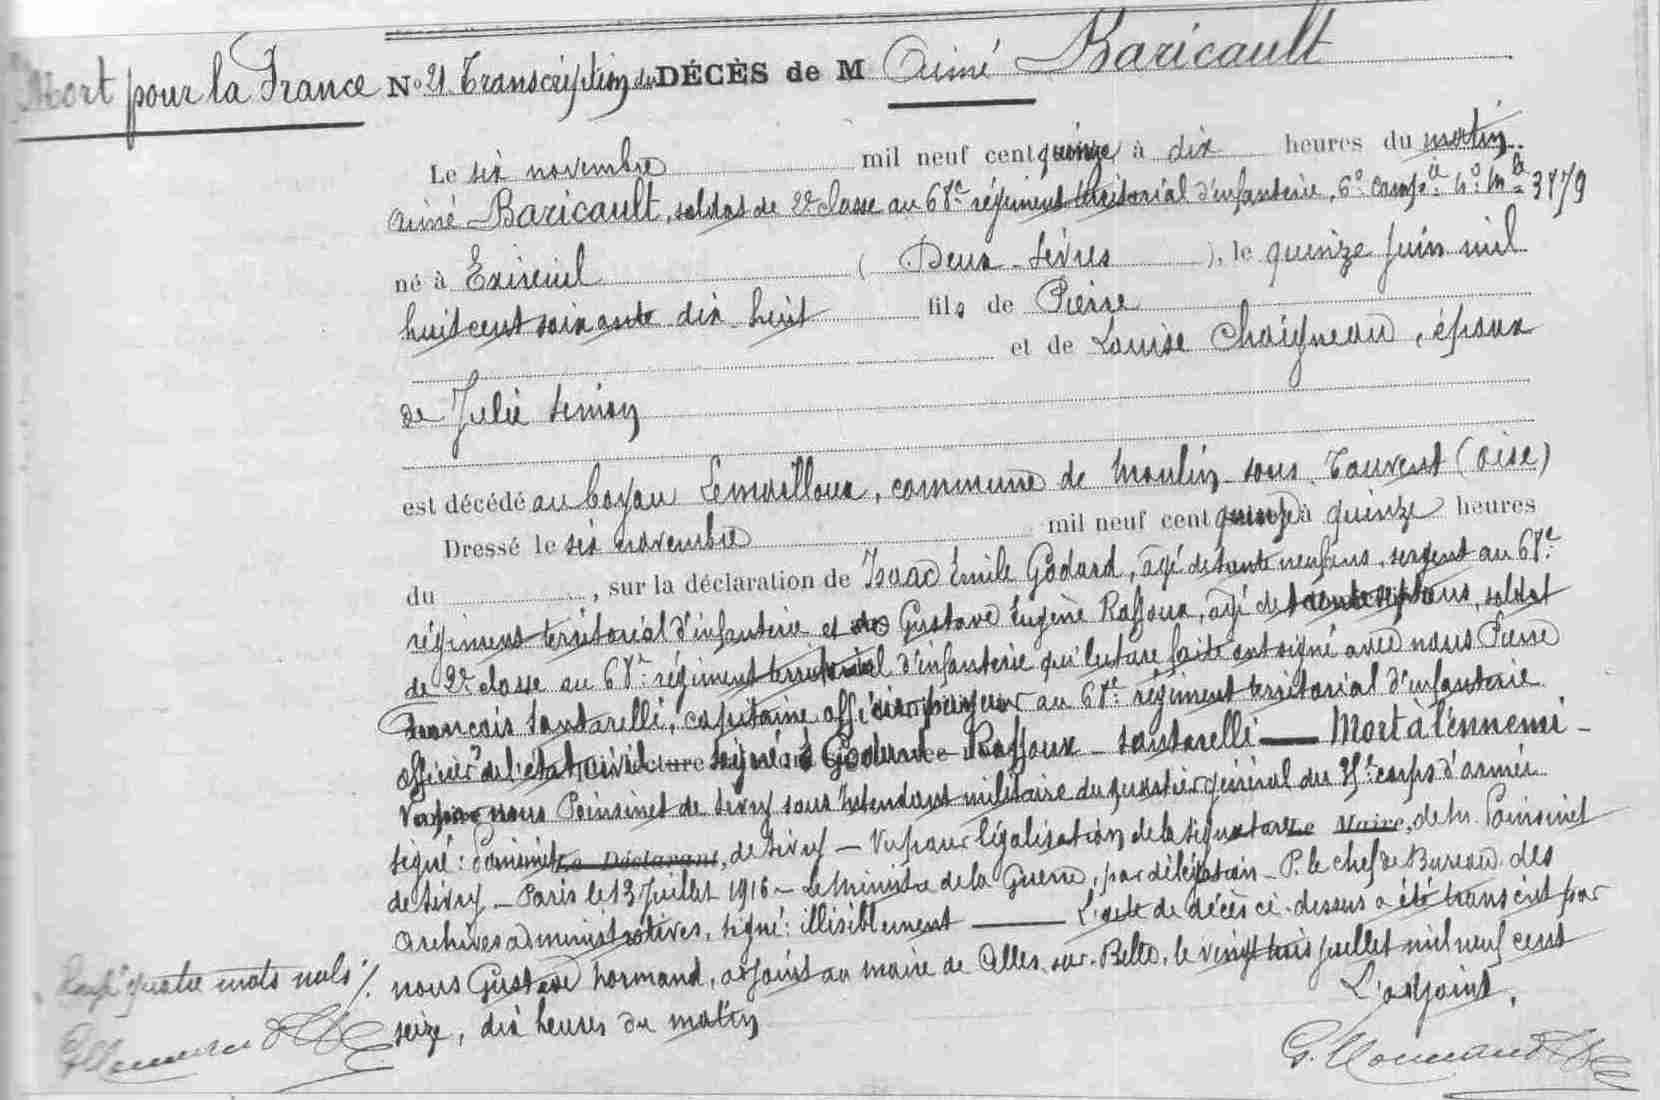 Mort pour la France
No 21. Transcription du DÉCÈS de M Aimé Baricault
Le six novembre mil neuf cent quinze à dix heures du matin
Aimé Baricault, soldat de 2e classe au 68e régiment territorial d'infanterie, 6e Compie No Mle 3879
né à Exireuil (Deux-Sèvres), le quinze juin mil
huit cent soixante dix-huit fils de Pierre
et de Louise Chaigneau, époux
de Julie Simon
est décédé au boyau Lemailloux, commune de Moulin-sous-Touvent (Oise)
Dressé le six novembre mil neuf cent quinze à quinze heures
du , sur la déclaration de Isaac Emile Godard, âgé de trente neuf ans, sergent au 68e
régiment territorial d'infanterie et de Gustave Eugène Raffoux, âgé de trente sept ans, soldat
de 2e classe au 68e régiment territorial d'infanterie qui lecture faite ont signé avec nous Pierre
François Santarelli, capitaine officier payeur au 68e régiment territorial d'infanterie
officier de l'état civil signé: Godard - Raffoux - Santarelli — Mort à l'ennemi -
Vu par nous Poinsinet de Sivry sous Intendant militaire du quartier général du 35e corps d'armée
signé: Poinsinet Le Déclarant, de Sivry — Vu pour légalisation de la signature Le Maire, de M. Poinsinet
de Sivry - Paris le 13 Juillet 1916 - Le Ministre de la Guerre, par délégation - P. le chef de Bureau des
Archives administratives, signé: illisiblement — L'acte de décès ci-dessus a été transcrit par
nous Gustave Normand, adjoint au maire de Celles-sur-Belle, le vingt trois juillet mil neuf cent
seize, dix heures du matin
L'adjoint,
G. Normand
quatre mots nuls ./.
G. Normand